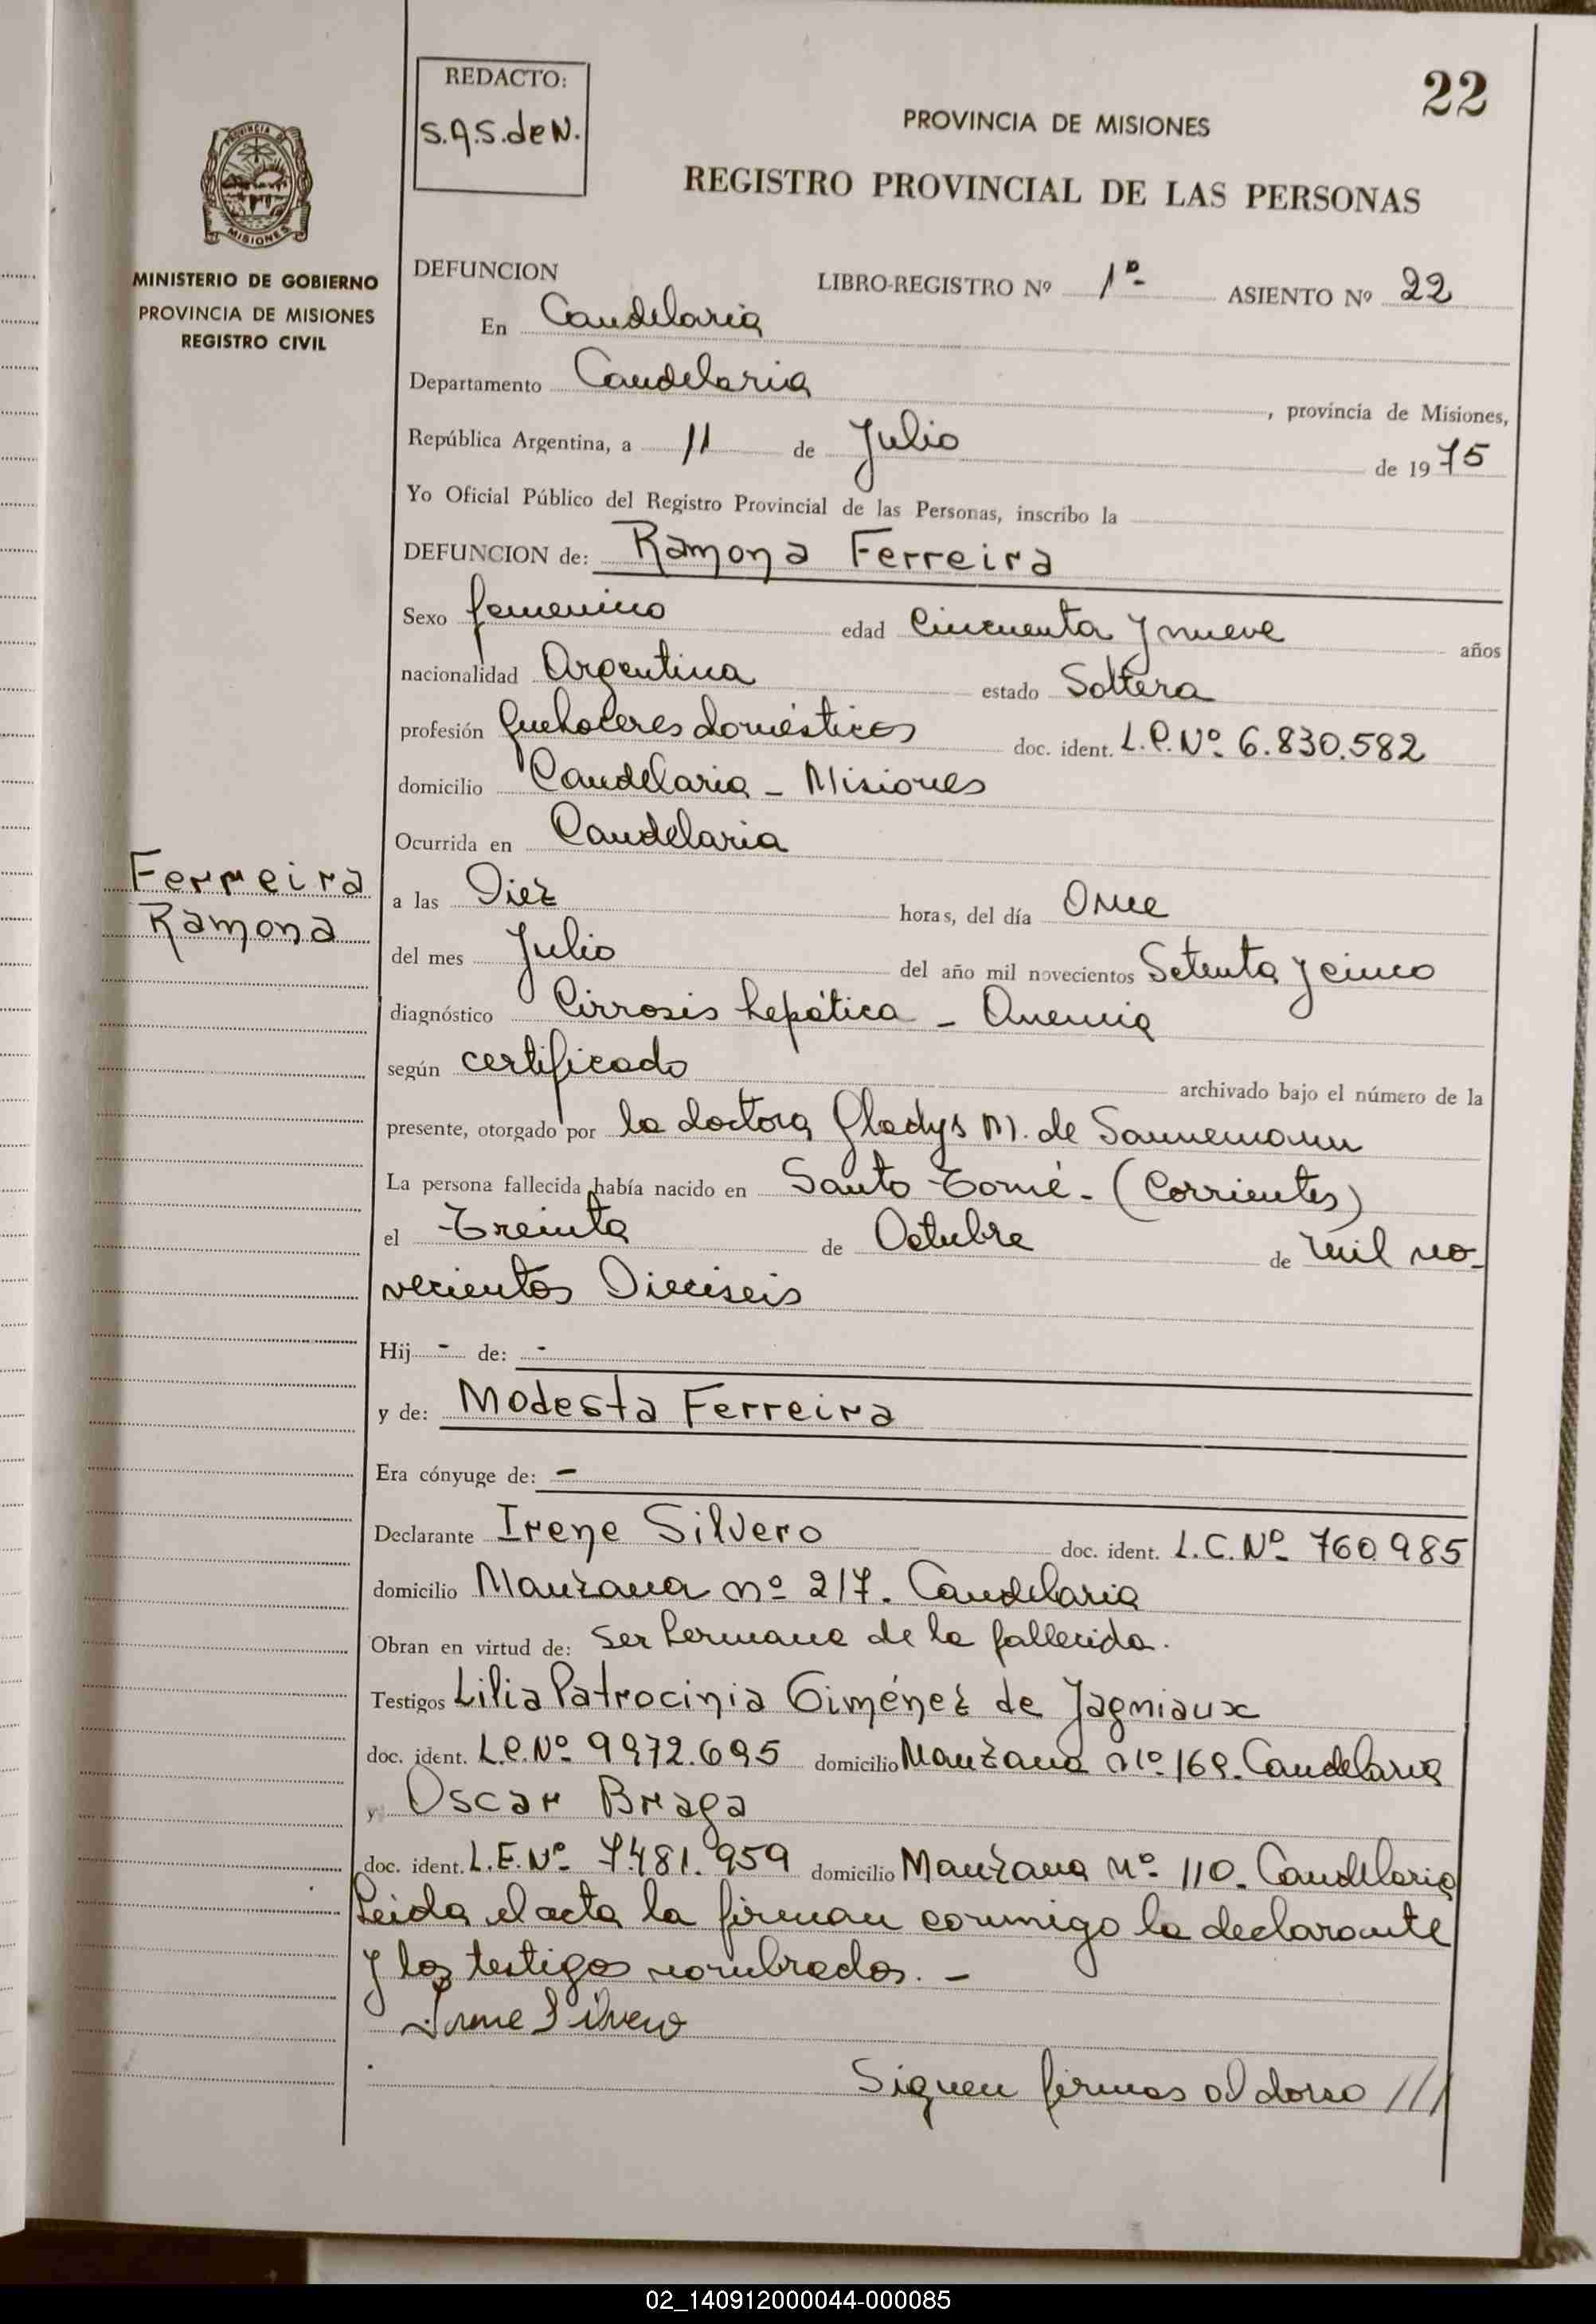 REDACTO:
S.A.S.deN.
22
PROVINCIA DE MISIONES
REGISTRO PROVINCIAL DE LAS PERSONAS
PROVINCIA DE
MISIONES
MINISTERIO DE GOBIERNO
PROVINCIA DE MISIONES
REGISTRO CIVIL
DEFUNCION LIBRO-REGISTRO Nº 1º ASIENTO Nº 22
En Candelaria
Departamento Candelaria, provincia de Misiones,
República Argentina, a 11 de Julio de 1975
Yo Oficial Público del Registro Provincial de las Personas, inscribo la
DEFUNCION de: Ramona Ferreira
Sexo femenino edad Cincuenta y nueve años
nacionalidad Argentina estado Soltera
profesión Quehaceres domésticos doc. ident. L.C.Nº 6.830.582
domicilio Candelaria - Misiones
Ocurrida en Candelaria
Ferreira
Ramona
a las Diez horas, del día Once
del mes Julio del año mil novecientos Setenta y cinco
diagnóstico Cirrosis hepática - Anemia
según certificado archivado bajo el número de la
presente, otorgado por la doctora Gladys M. de Sannemann
La persona fallecida había nacido en Santo Tomé - (Corrientes)
el Treinta de Octubre de mil no-
vecientos Dieciseis
Hij - de: -
y de: Modesta Ferreira
Era cónyuge de: -
Declarante Irene Silvero doc. ident. L.C.Nº 760.985
domicilio Manzana nº 217. Candelaria
Obran en virtud de: ser hermana de la fallecida.
Testigos Lilia Patrocinia Giménez de Jagmiaux
doc. ident. L.C.Nº 9972.695 domicilio Manzana nº 169. Candelaria
y Oscar Braga
doc. ident. L.E.Nº 7481.959 domicilio Manzana nº 110. Candelaria
Leida el acta la firman conmigo la declarante
y los testigos nombrados. -
Irene Silvero
Siguen firmas al dorso ///
02_140912000044-000085